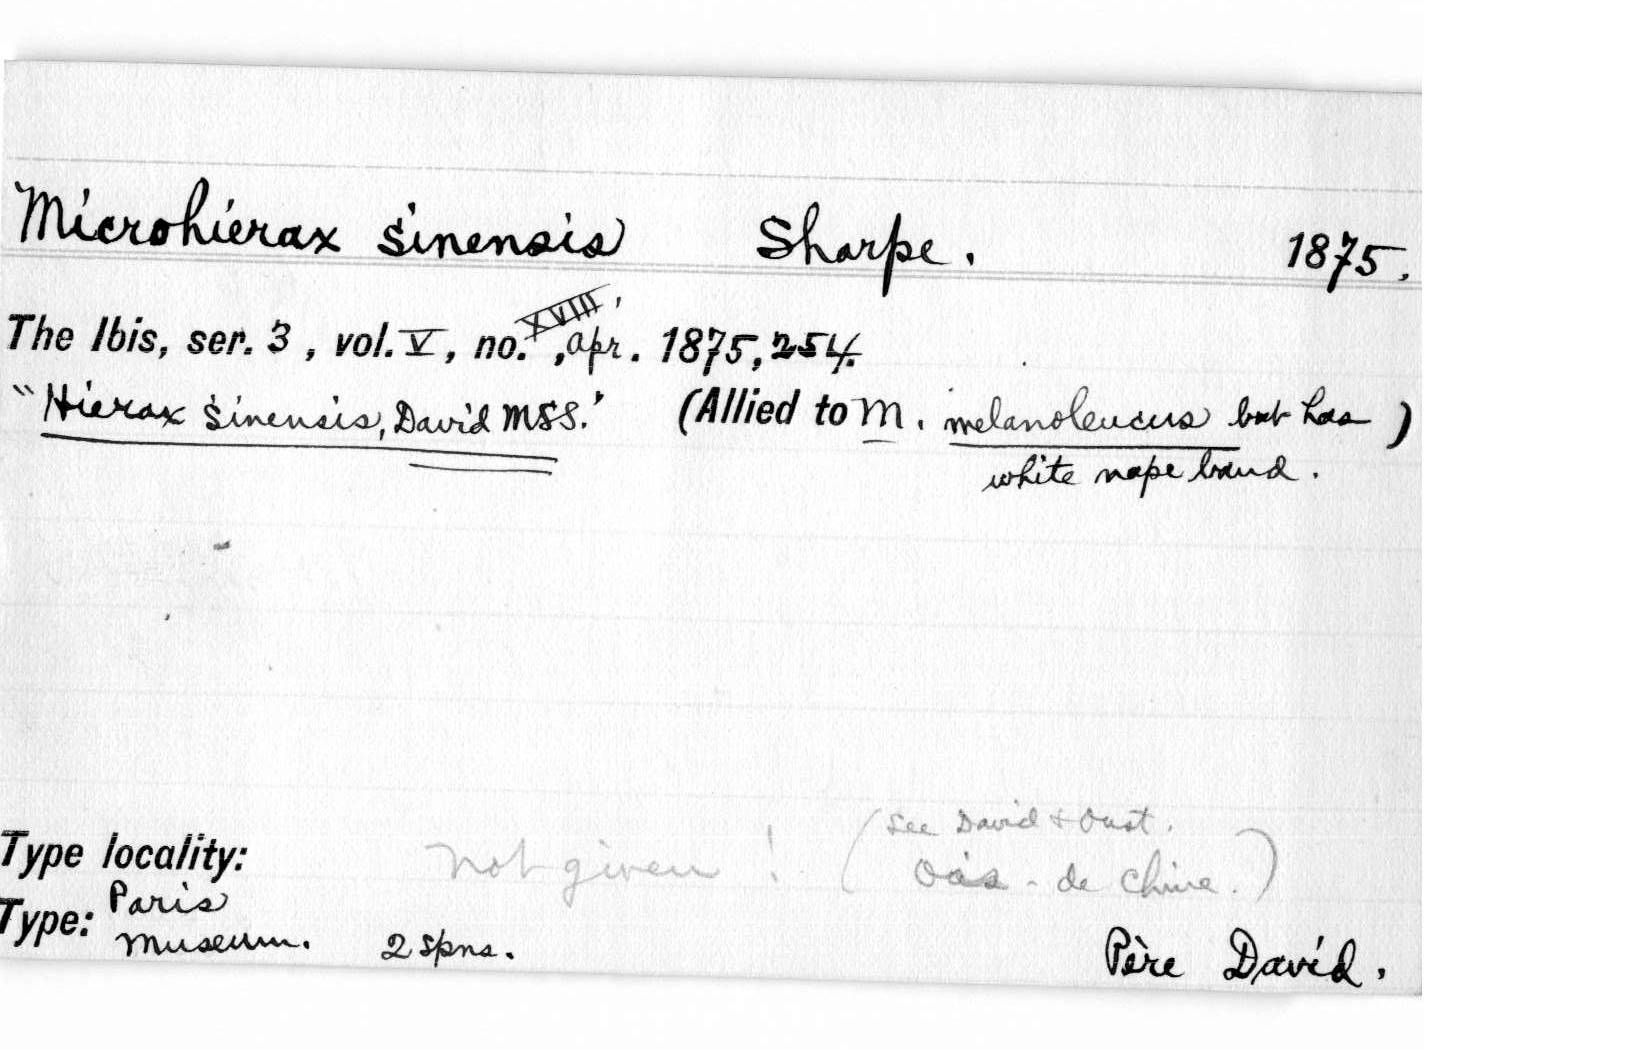 Microhierax sinensis Sharpe. 1875.
The Ibis, ser. 3, vol. V, no. XVIII, Apr. 1875, 254.
"Hierax sinensis, David MSS." (Allied to M. melanoleucus but has)
white nape band.
(see David & Oust.
Type locality: not given! Ois. de Chine.)
Type: Paris
Museum. 2 spns. Père David.